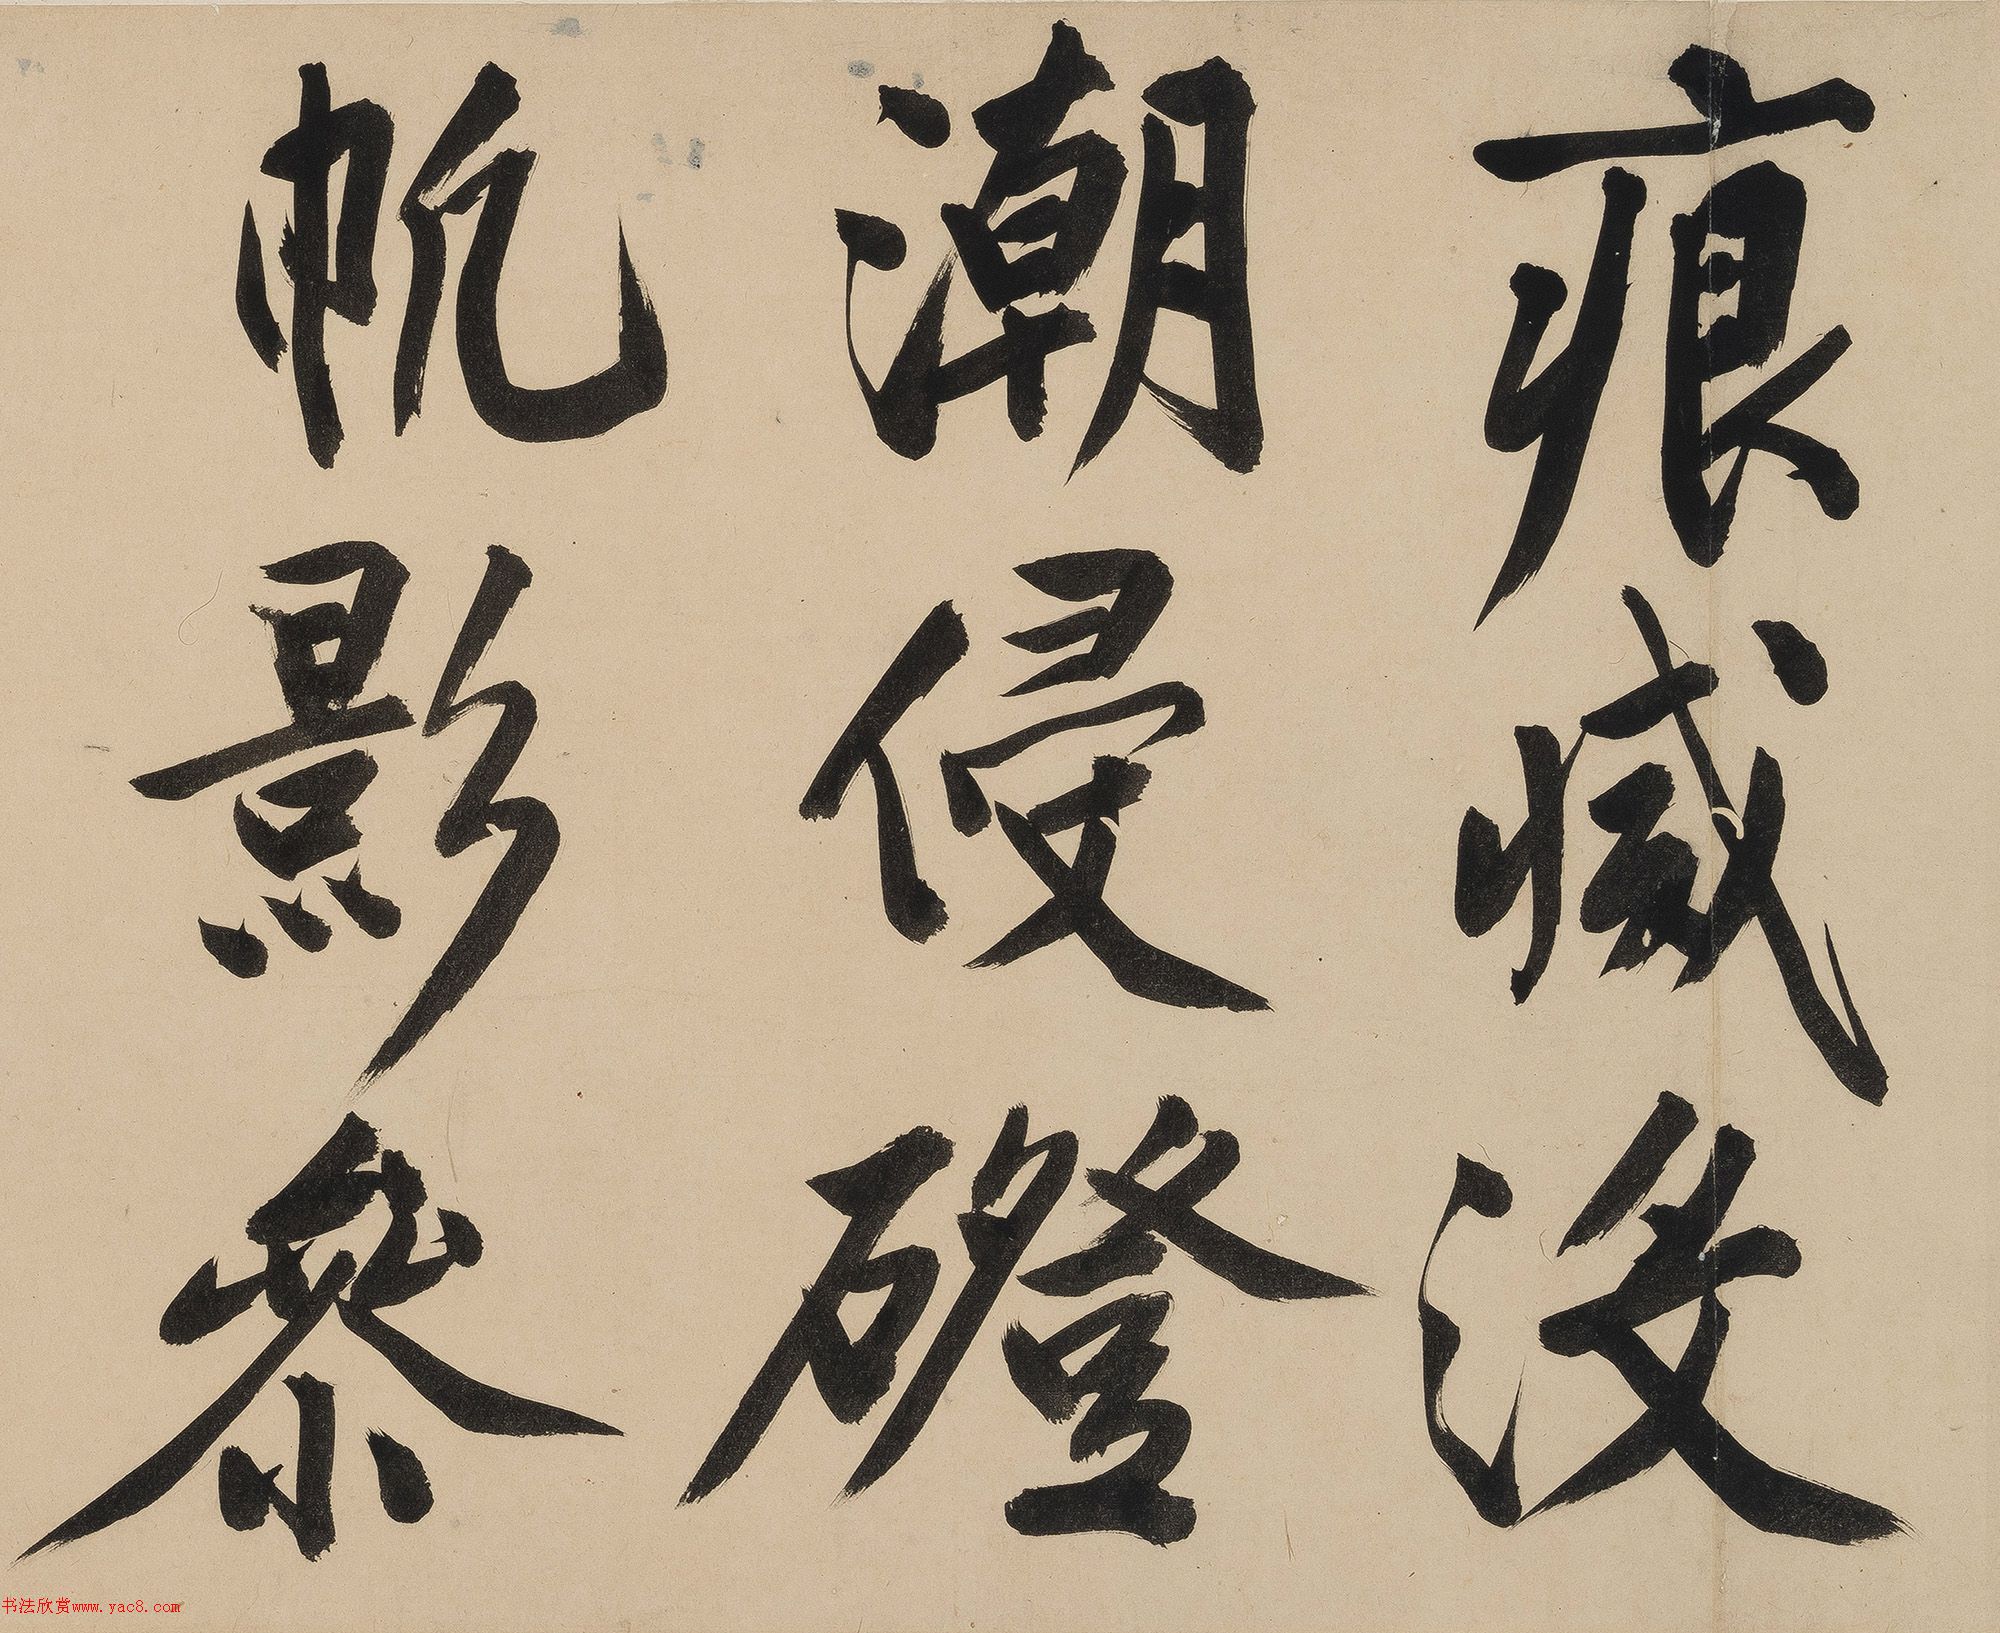 痕滅没
潮侵磴
帆影參
书法欣赏www.yac8.com